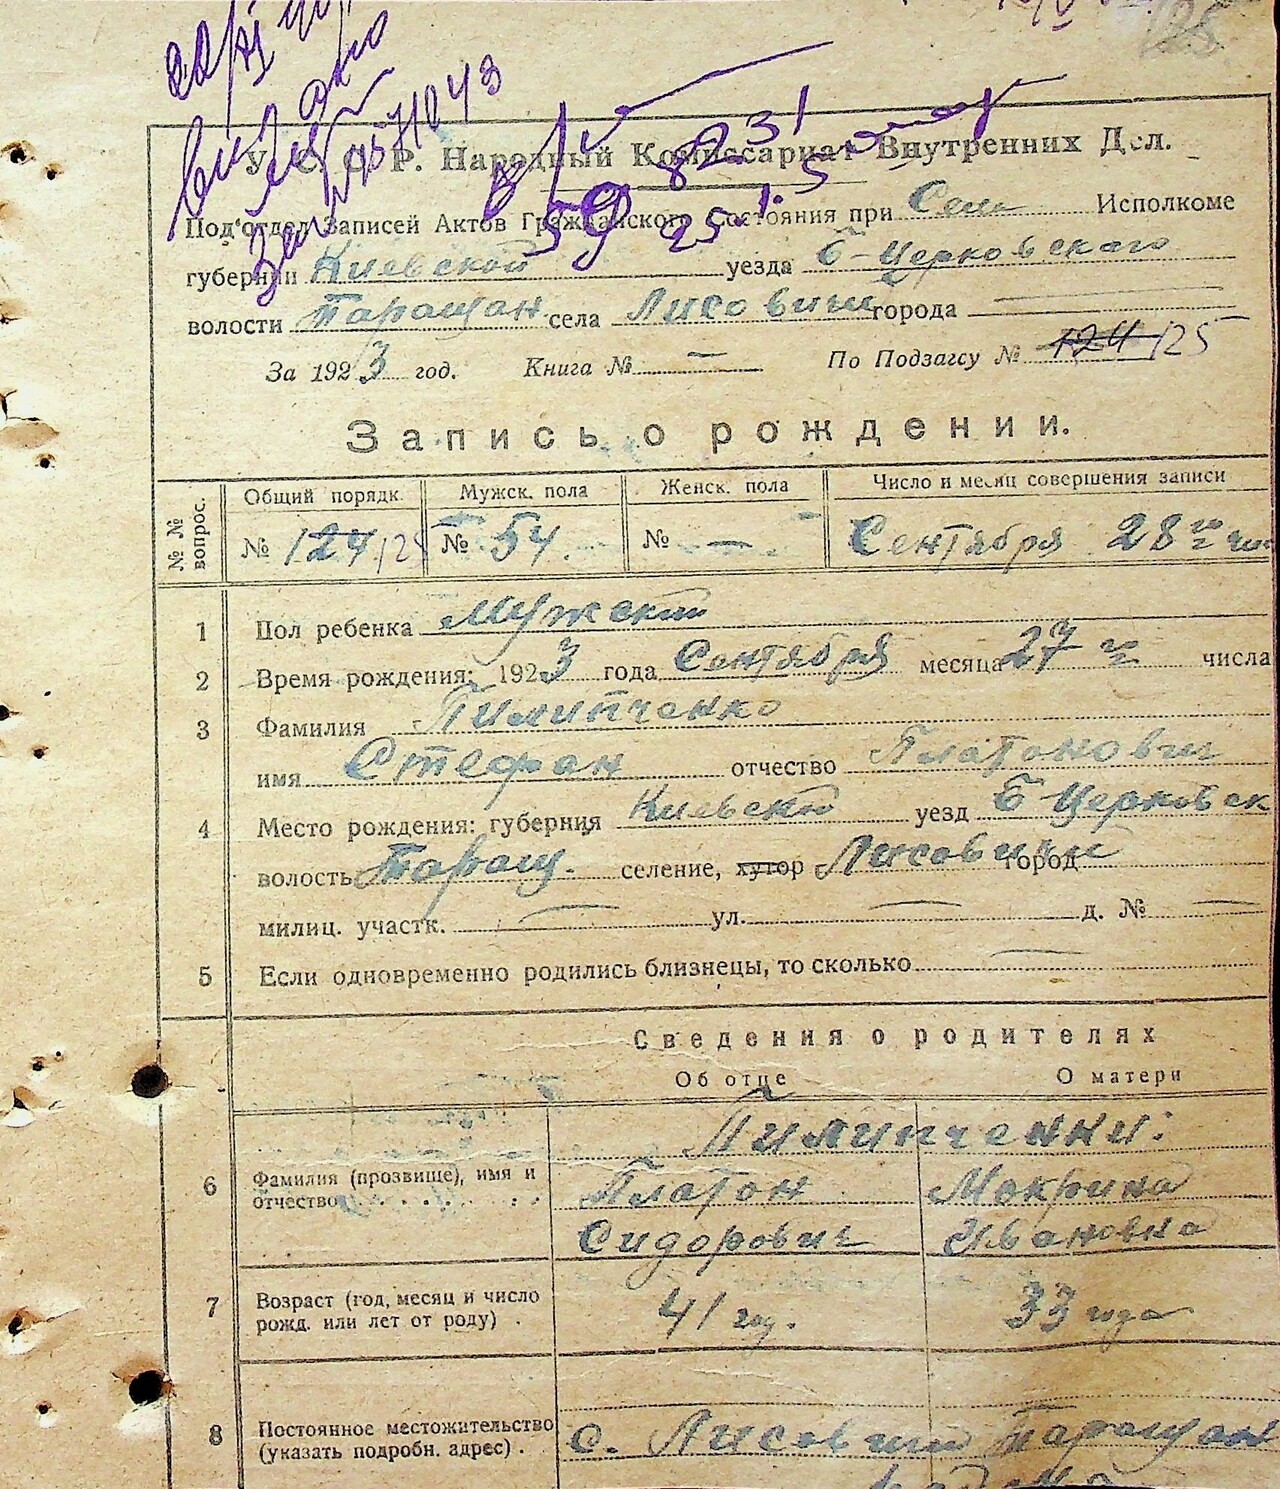 125
571043
У. С. С. Р. Народный Комиссариат Внутренних Дел.
Под'отдел Записей Актов Гражданского Состояния при Сель Исполкоме
губернии Киевской уезда Б-Церковского
волости Таращан села Лисовичи города
За 1923 год. Книга № — По Подзагсу № 124 125
Запись о рождении.
№ № вопрос.
Общий порядк. Мужск. пола Женск. пола Число и месяц совершения записи
№ 124 125 № 54 № — Сентября 28го
1 Пол ребенка Мужской
2 Время рождения: 1923 года Сентября месяца 27го числа
3 Фамилия Пилипченко
имя Стефан отчество Платонович
4 Место рождения: губерния Киевской уезд Б-Церковск
волость Таращ. селение, хутор Лисовичи город
милиц. участк. — ул. — д. № —
5 Если одновременно родились близнецы, то сколько —
Сведения о родителях
Об отце О матери
Пилипченки:
6 Фамилия (прозвище), имя и отчество Платон Сидорович Мокрина Ивановна
7 Возраст (год, месяц и число рожд. или лет от роду) . 41 год. 33 года
8 Постоянное местожительство (указать подробн. адрес) . с. Лисовичи Таращан